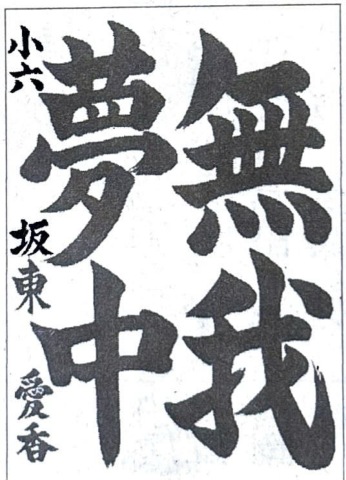 無我
夢中
小六 坂東 愛香